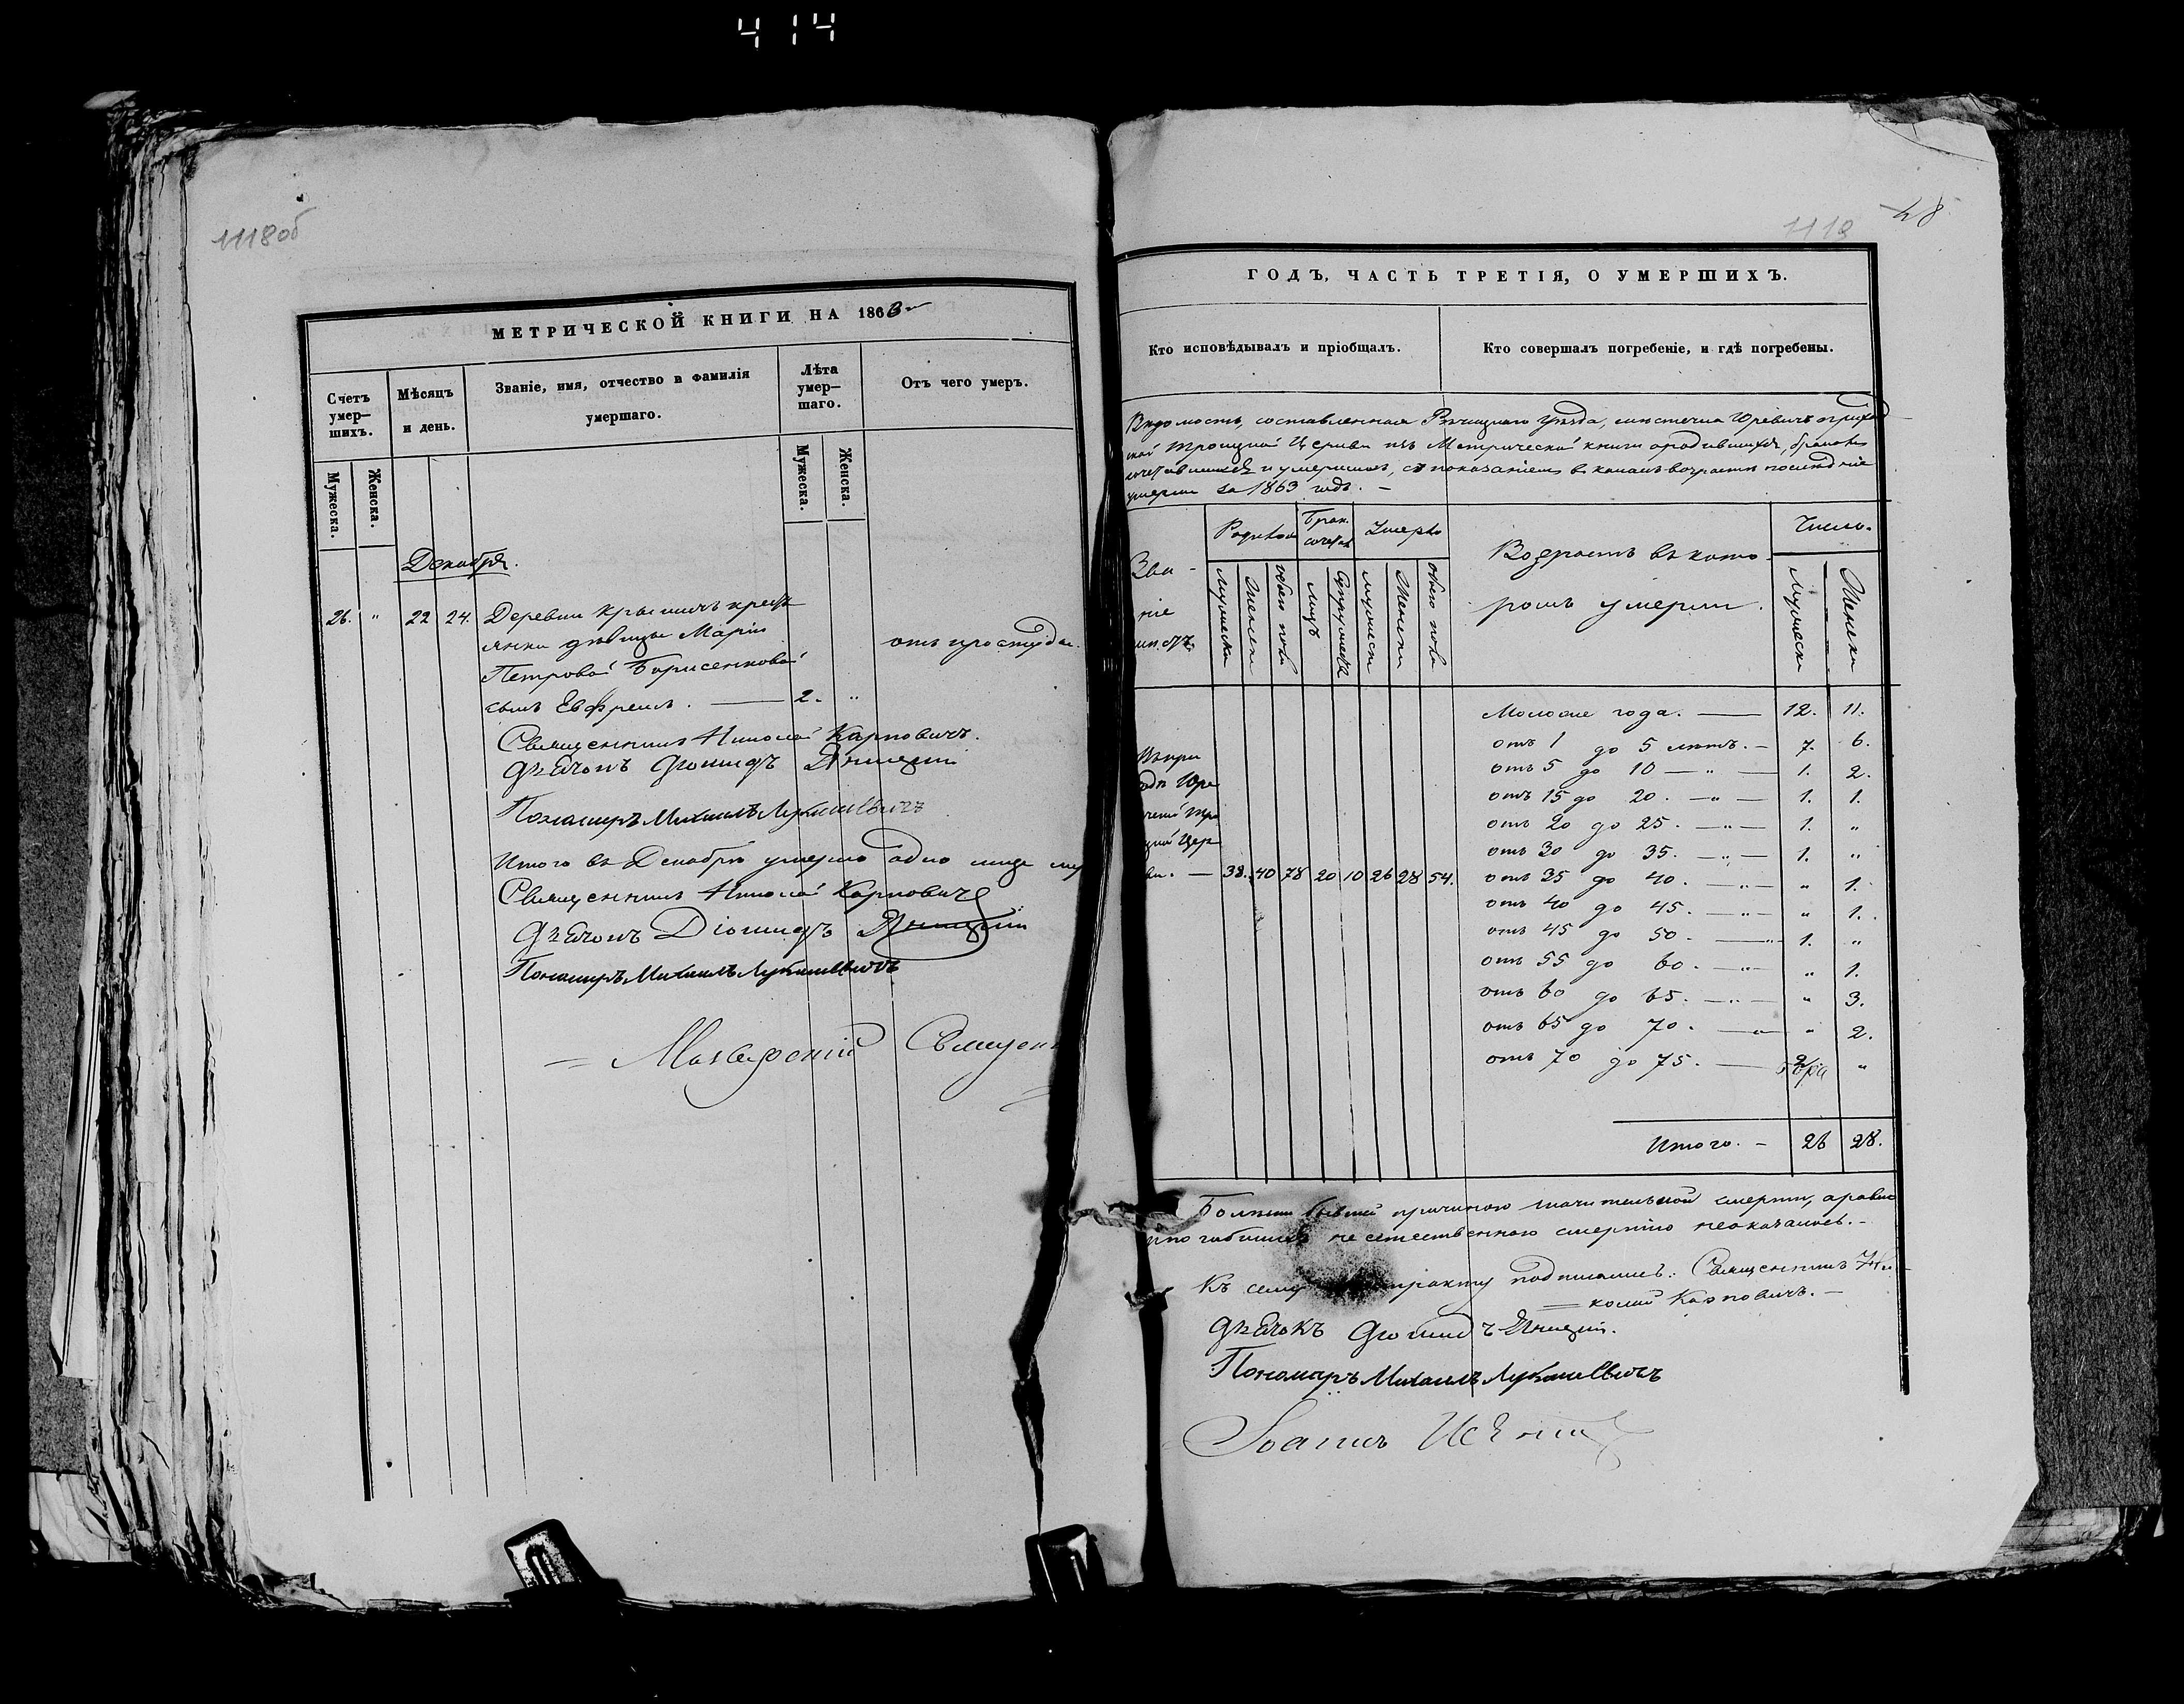 414
1118об
МЕТРИЧЕСКОЙ КНИГИ НА 1863
Счетъ умер-шихъ.
Мѣсяцъ и день.
Званіе, имя, отчество и фамилія умершаго.
Лѣта умер-шаго.
Отъ чего умеръ.
Мужеска.
Женска.
Мужеска.
Женска.
Декабря.
26. " 22 24. Деревни Крынычъ кресть
янки дѣвицы Маріи
отъ простуды.
Петровой Борисенковой
сынъ Евфремъ. — 2. "
Священникъ Николай Карповичъ.
Дьячокъ Діомидъ
Пономаръ Михаилъ Лукашевичъ
Итого въ Декабрѣ умерло одно лице му
Священникъ Николай Карповичъ
Дьячокъ Діомидъ
Пономаръ Михаилъ Лукашевичъ
Священ
1119
48
ГОДЪ, ЧАСТЬ ТРЕТІЯ, О УМЕРШИХЪ.
Кто исповѣдывалъ и пріобщалъ.
Кто совершалъ погребеніе, и гдѣ погребены.
Вѣдомость, составленная Рѣчицкаго Уѣзда, мѣстечка Юревичъ приход
ской Троицкой Церкви изъ Метрической книги о родившихся, бракомъ
сочетавшихся и умершихъ, съ показаніемъ въ какомъ возрастѣ послѣдніе
умерли за 1863 годъ. –
Зва-
ніе
мѣстъ
Родилось
Брак. сочетал.
Умерло
Возрастъ въ кото
ромъ умерли.
Число.
Мужеска
Женска
обоего пола
Лицъ
Супружествъ
Мужеска
Женска
обоего пола
Мужеска
Женска
Въ при
ходѣ Юре
вичской Тро
ицкой Цер
кви. — 38. 40 78 20 10 26 28 54.
Моложе года. — 12. 11.
отъ 1 до 5 лѣтъ. – 7. 6.
отъ 5 до 10 — " — 1. 2.
отъ 15 до 20. — " — 1. 1.
отъ 20 до 25. — " — 1. "
отъ 30 до 35. — " — 1. "
отъ 35 до 40. — " — " 1.
отъ 40 до 45. — " — " 1.
отъ 45 до 50. — " 1. "
отъ 55 до 60. — " — " 1.
отъ 60 до 65. — " — " 3.
отъ 65 до 70. — " — " 2.
отъ 70 до 75. — 2 "
Итого. – 26 28.
Болѣзни бывшей причиною значительной смерти, а равно
и погибшихъ не естественною смертію неоказалось. –
Къ сему подписались: Священникъ Ни-
колай Карповичъ. –
Дьячокъ Діомидъ
Пономаръ Михаилъ Лукашевичъ
Іоаннъ